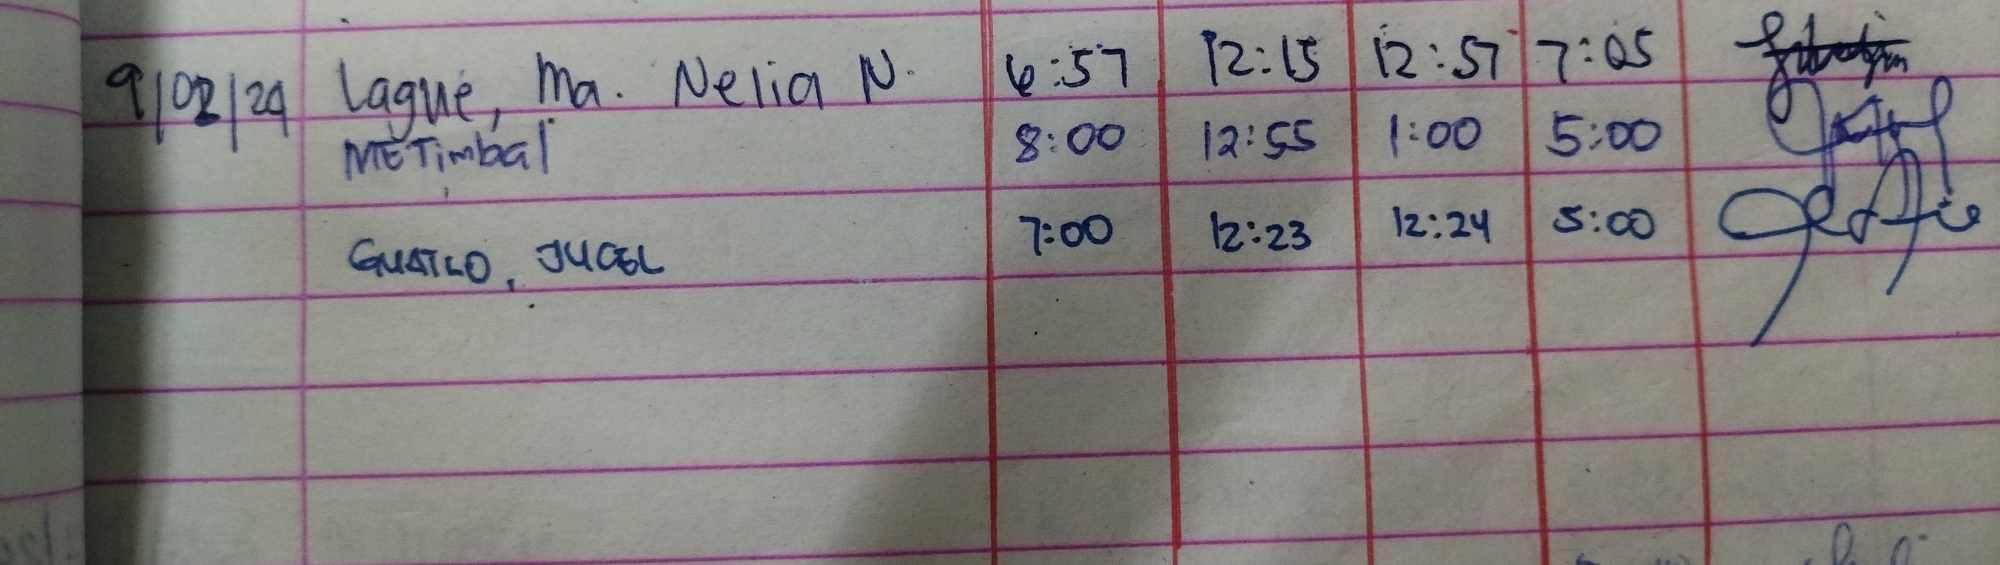 9/02/24 Lague, Ma. Nelia N. 6:57 12:15 12:57 7:05
METimbal 8:00 12:55 1:00 5:00
GUATLO, JUCEL 7:00 12:23 12:24 5:00